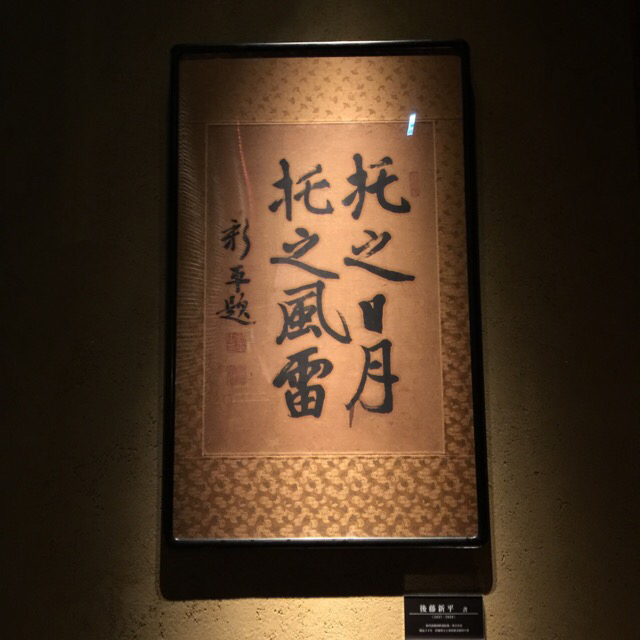 托之日月
托之風雷
新平題
後藤新平 書